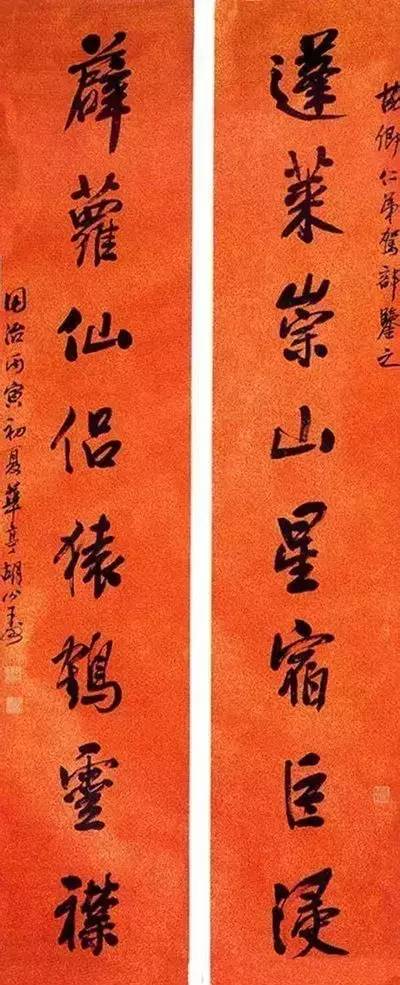 卿仁弟駕部鑒之
蓬萊崇山星宿巨浸
薜蘿仙侣猿鶴靈襟
同治丙寅初夏華亭胡公壽